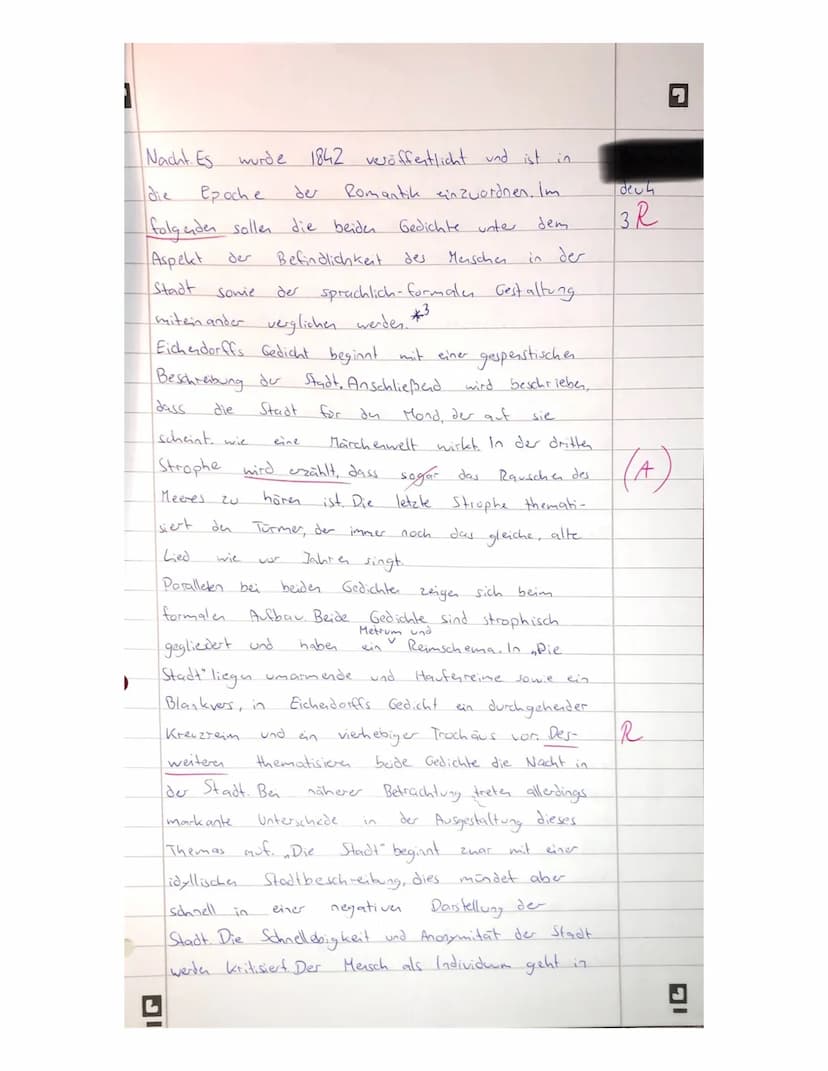 Nacht. Es wurde 1842 veröffentlicht und ist in
die Epoche der Romantik einzuordnen. Im
deuh
folgenden sollen die beiden Gedichte unter dem
3 R
Aspekt der Befindlichkeit des Menschen in der
Stadt sowie der sprachlich-formalen Gestaltung
miteinander verglichen werden. *3
Eichendorffs Gedicht beginnt mit einer gespenstischen
Beschreibung der Stadt. Anschließend wird beschrieben,
dass die Stadt für den Mond, der auf sie
scheint, wie eine Märchenwelt wirkt. In der dritten
Strophe wird erzählt, dass sogar das Rauschen des
(A)
Meeres zu hören ist. Die letzte Strophe themati-
siert den Türmer, der immer noch das gleiche, alte
Lied wie vor Jahren singt.
Parallelen bei beiden Gedichten zeigen sich beim
formalen Aufbau. Beide Gedichte sind strophisch
Metrum und
gegliedert und haben ein Reimschema. In „Die
Stadt" liegen umarmende und Haufenreime sowie ein
Blankvers, in Eichendorffs Gedicht ein durchgehender
Kreuzreim und ein vierhebiger Trochäus vor. Des-
R
weiteren thematisieren beide Gedichte die Nacht in
der Stadt. Bei näherer Betrachtung treten allerdings
markante Unterschede in der Ausgestaltung dieses
Themas auf. „Die Stadt" beginnt zwar mit einer
idyllischen Stadtbeschreibung, dies mündet aber
schnell in einer negativen Darstellung der
Stadt. Die Schnelllebigkeit und Anonymität der Stadt
werden kritisiert. Der Mensch als Individuum geht in